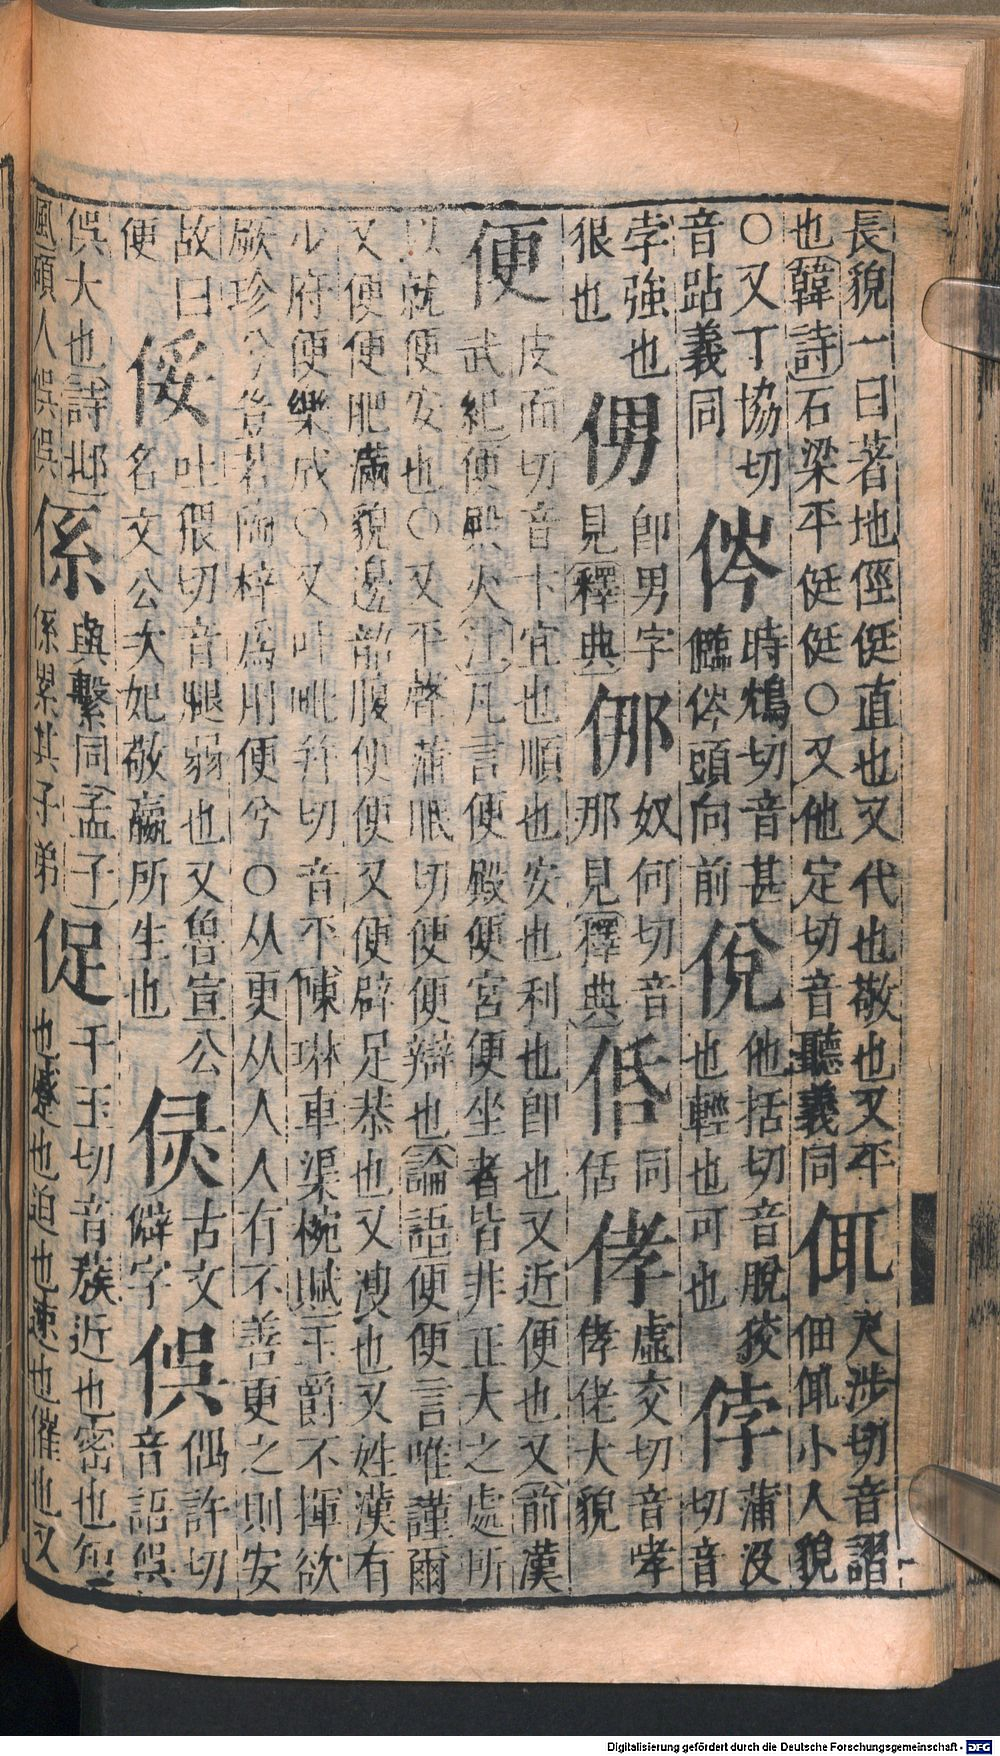 長貌一曰著地俓侹直也又代也敬也又平
也韓詩石梁平侹侹〇又他定切音聽義同
𠈭
尺涉切音謵
佃𠈭小人貌
〇又丁協切
音跕義同
㑗
時鴆切音甚
㑗頭向前
侻
他括切音脫狡
也輕也可也
侼
蒲没
切音
孛強也
很也
侽
卽男字
見釋典
㑚
奴何切音
那見釋典
㑻
同
佸
侾
虛交切音哮
侾佬大貌
便
皮面切音卞宜也順也安也利也卽也又近便也又前漢
武紀便殿火注凡言便殿便宮便坐者皆非正大之處所
以就便安也〇又平聲蒲眠切便便辯也論語便便言唯謹爾
又便便肥滿貌邊韶腹便便又便辟足恭也又溲也又姓漢有
少府便樂成〇又叶毗幷切音平陳琳車渠椀賦玉爵不揮欲
厥珍兮豈若陶梓爲用便兮〇从更从人人有不善更之則安
故曰
便
俀
吐猥切音腿弱也又魯宣公
名文公次妃敬嬴所生也
㑨
古文
僻字
俁
偶許切
音語俁
俁大也詩邶
風碩人俁俁
係
與繫同孟子
係累其子弟
促
千玉切音蔟近也密也
也蹙也迫也速也催也又
Digitalisierung gefördert durch die Deutsche Forschungsgemeinschaft - DFG